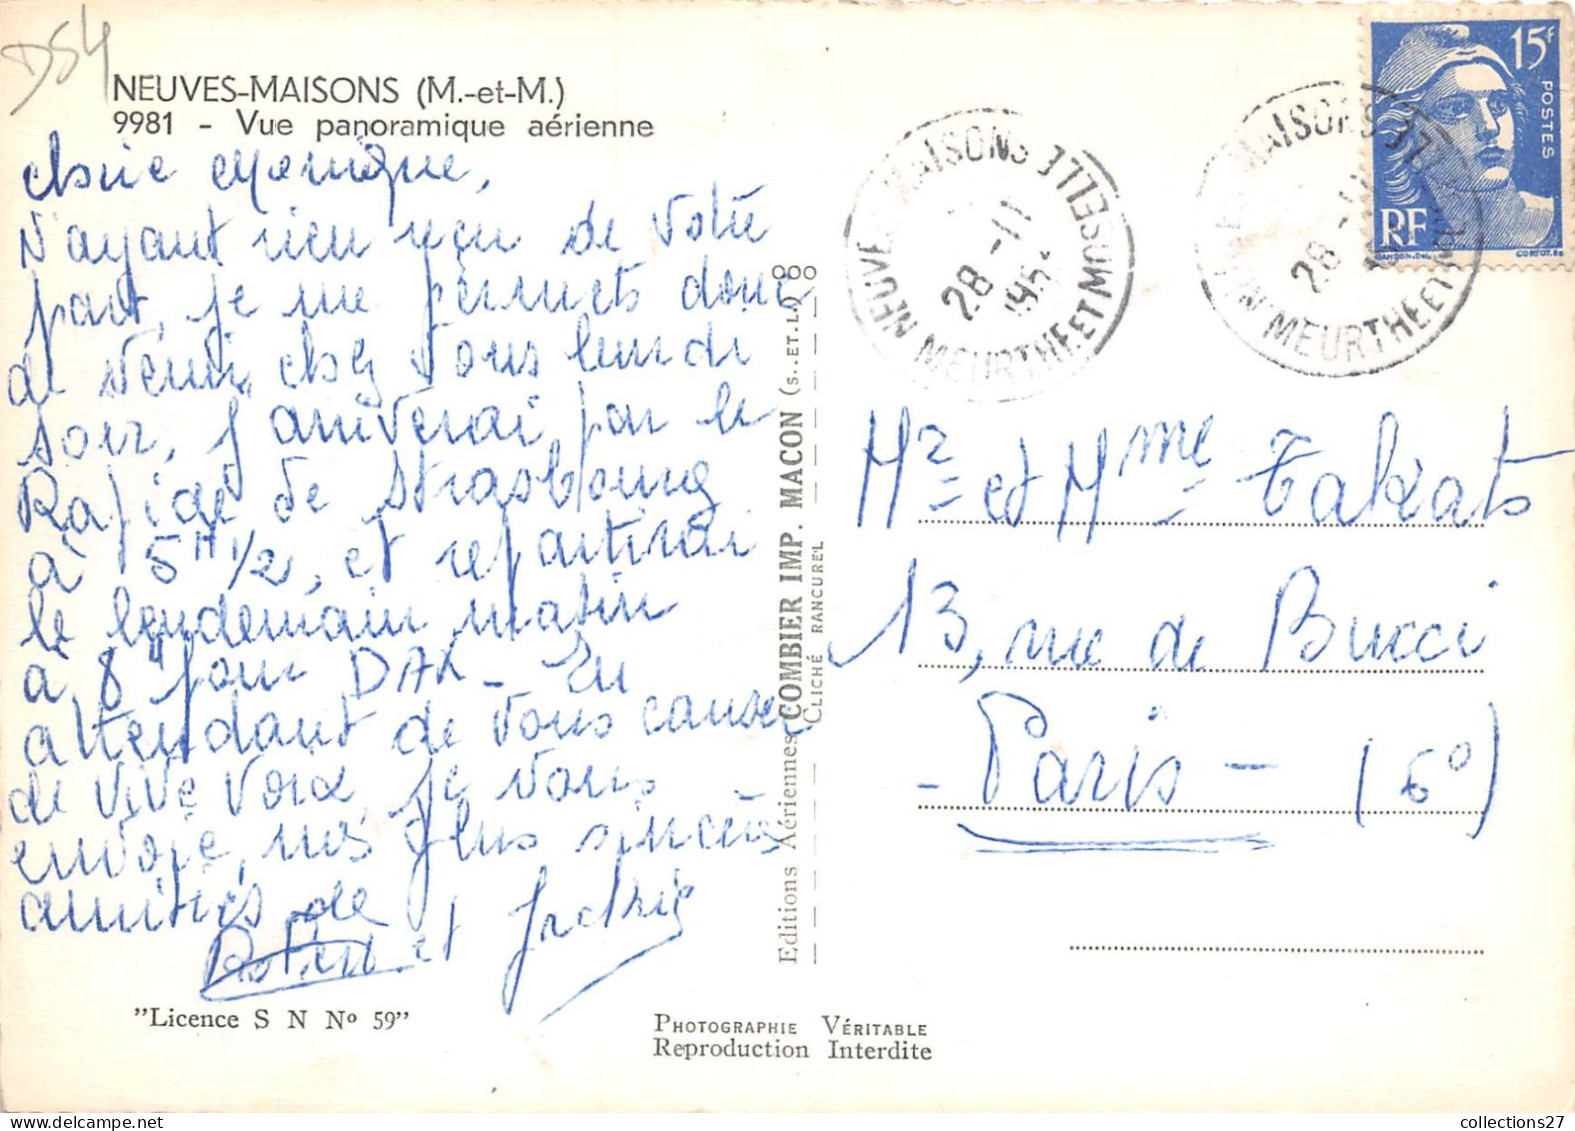 D54
NEUVES-MAISONS (M.-et-M.)
9981 - Vue panoramique aérienne
Monique,
N'ayant rien reçu de votre
part, je me permets donc
de venir chez vous lundi
soir, j'arriverai par le
Rapide de Strasbourg
à 5H 1/2, et repartirai
le lendemain matin
à 8H pour DAX - En
attendant de vous causer
de vive voix, je vous
envoie, mes plus sincères
amitiés de
et
"Licence S N N° 59"
Editions Aériennes COMBIER IMP. MACON (S.-ET-L.) ooo
CLICHÉ RANCUREL
PHOTOGRAPHIE VÉRITABLE
Reproduction Interdite
NEUVES MAISONS
28 -11
MEURTHE ET MOSELLE
MAISONS
28 -11
MEURTHE ET
15F
POSTES
RF
GANDON
CORTOT
Mr et Mme Takats
13, rue de Bucci
- Paris - (6°)
collections27